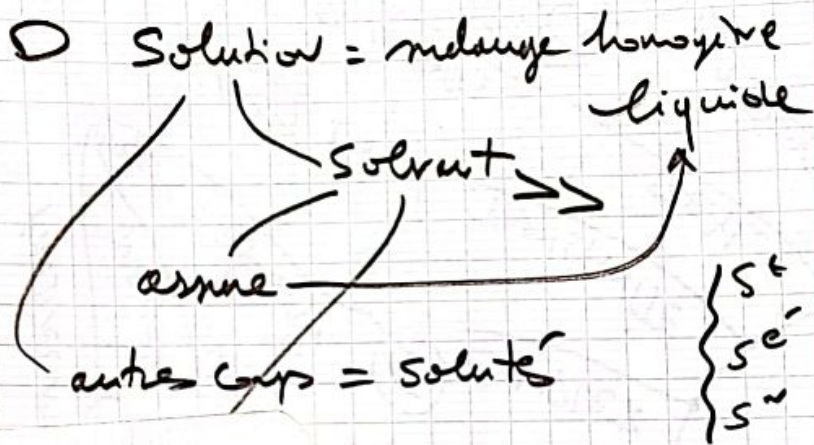 D Solution = mélange homogène
liquide
Solvant >>
assure
autres corps = solutés
S^t
S^é
S^n